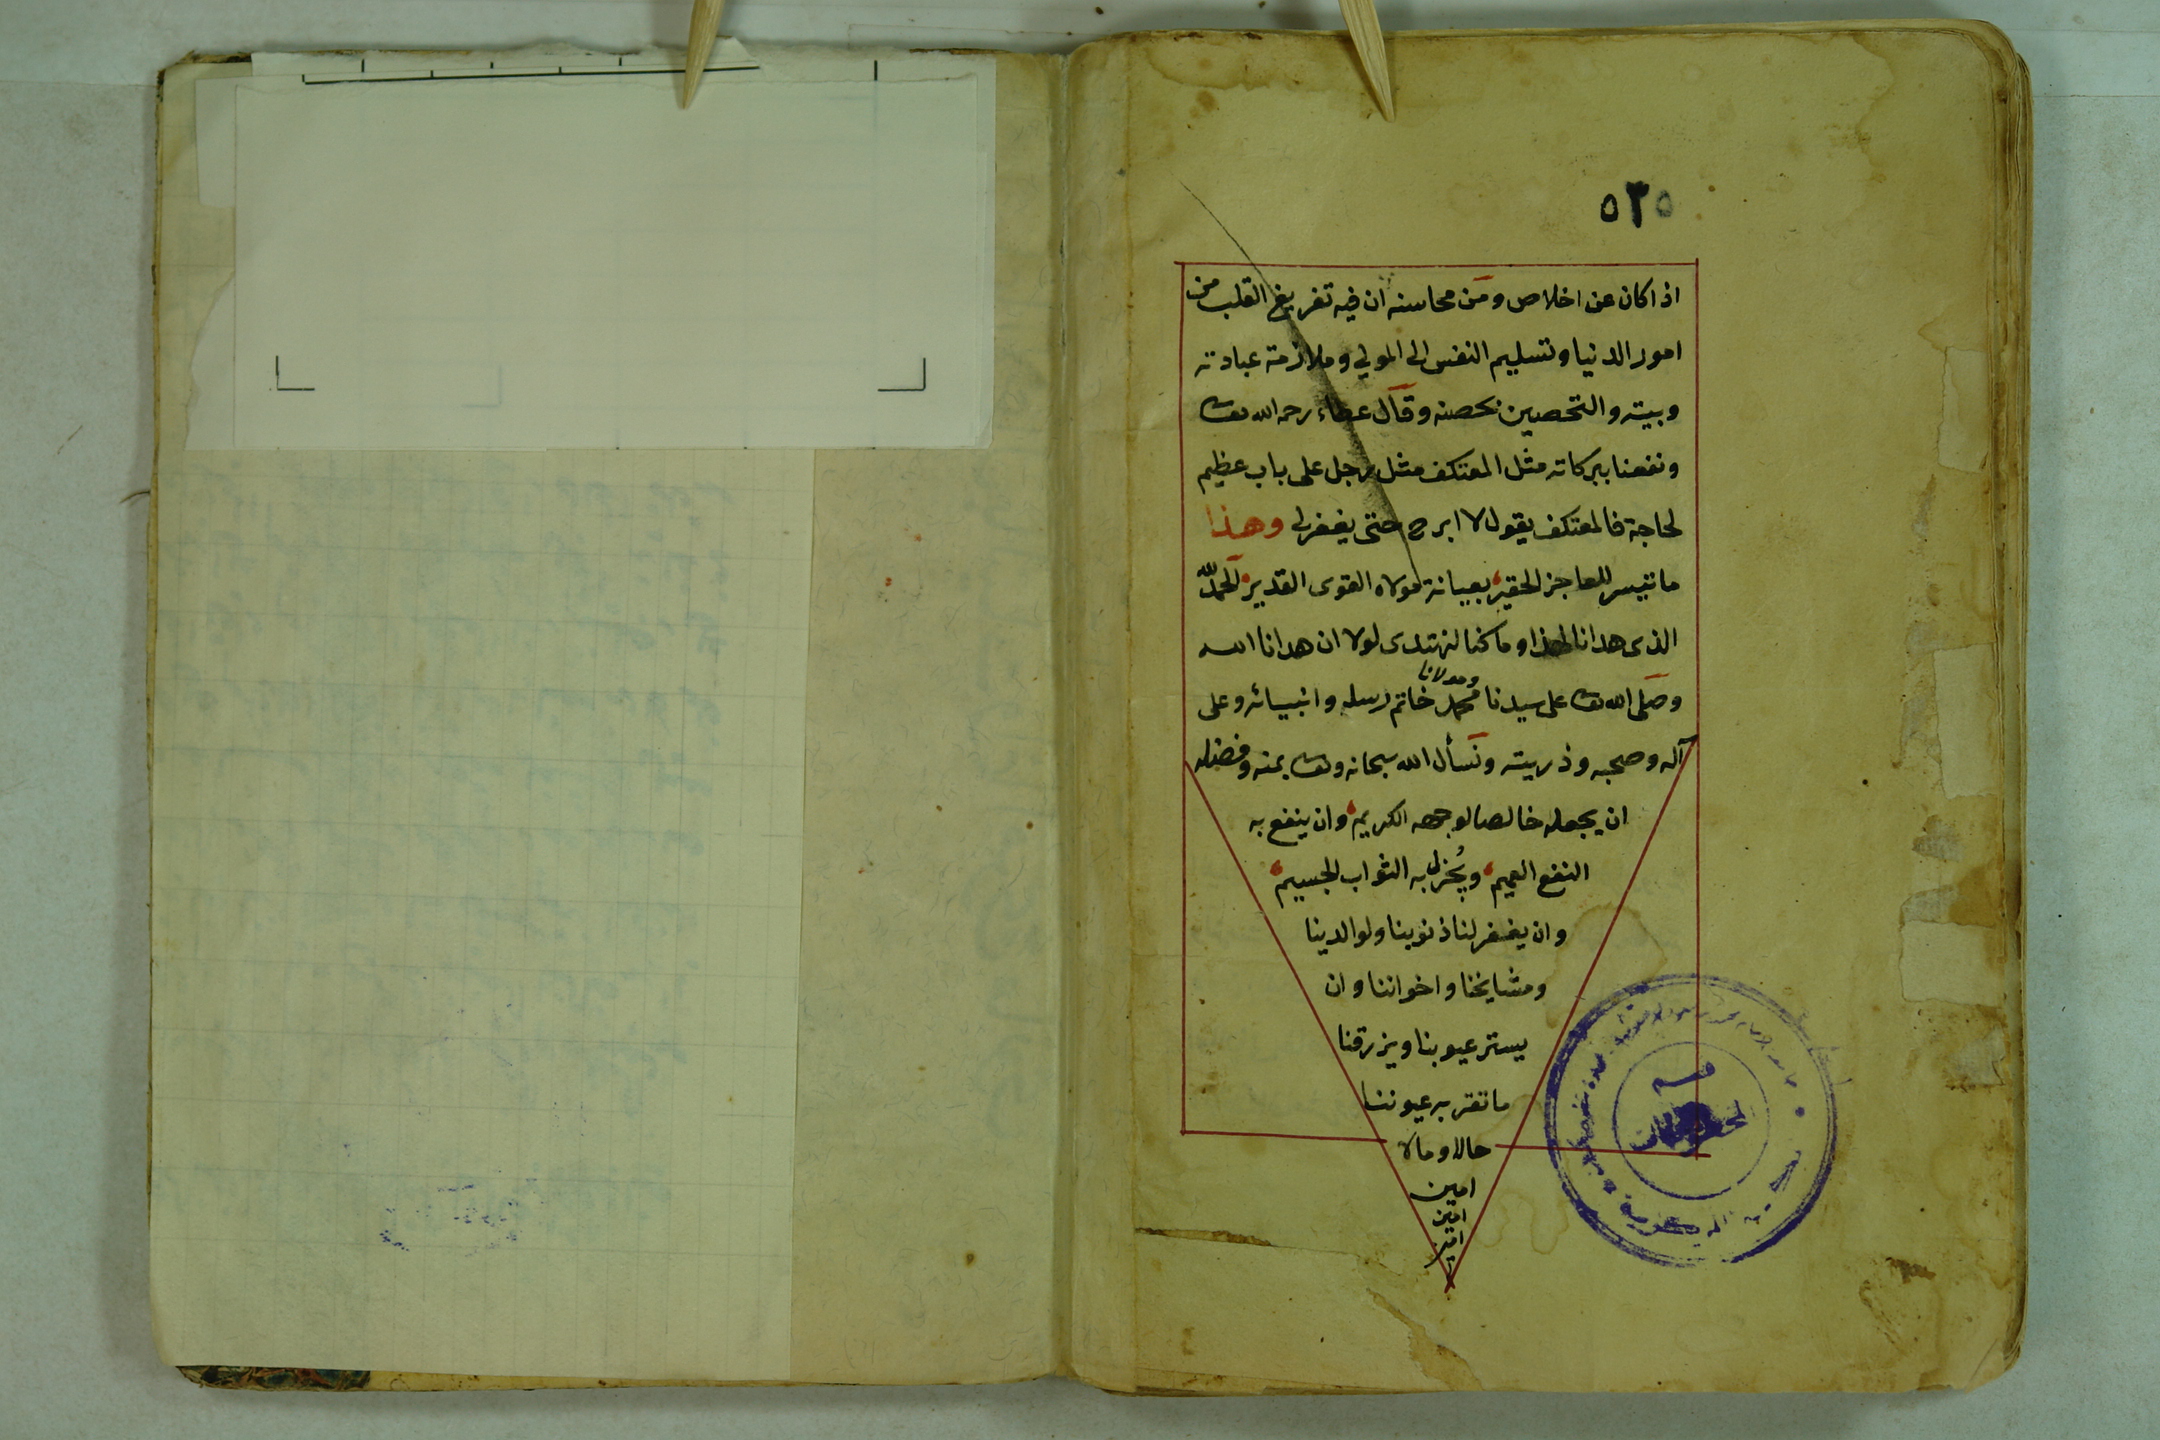 ٥٣٥
اذا كان عن اخلاص ومن محاسنه ان فيه تفريغ القلب من
امور الدنيا وتسليم النفس الى المولي وملازمة عبادته
وبيته والتحصين بحصنه وقال عطاء رحمه الله تعا
ونفعنا ببركاته مثل المعتكف مثل رجل على باب عظيم
لحاجة فالمعتكف يقول لا ابرح حتى يغفرلي وهذا
ما تيسر للعاجز الحقير مولاه القوى القدير الحمد لله
الذى هدانا لهذا وما كنا لنهتدى لولا ان هدانا الله
وصلى الله تعا على سيدنا ومولانا محمد خاتم رسله وانبيائه وعلى
آله وصحبه وذريته ونسأل الله سبحانه وتعا بمنه وفضله
ان يجعله خالصا لوجهه الكريم وان ينفع به
النفع العميم ويجزل به الثواب الجسيم
وان يغفر لنا ذنوبنا ولوالدينا
ومشايخنا واخواننا وان
يستر عيوبنا ويرزقنا
ما تقر به عيوننا
حالا ومالا
امين
امين
امين
قسم
المخطوطات